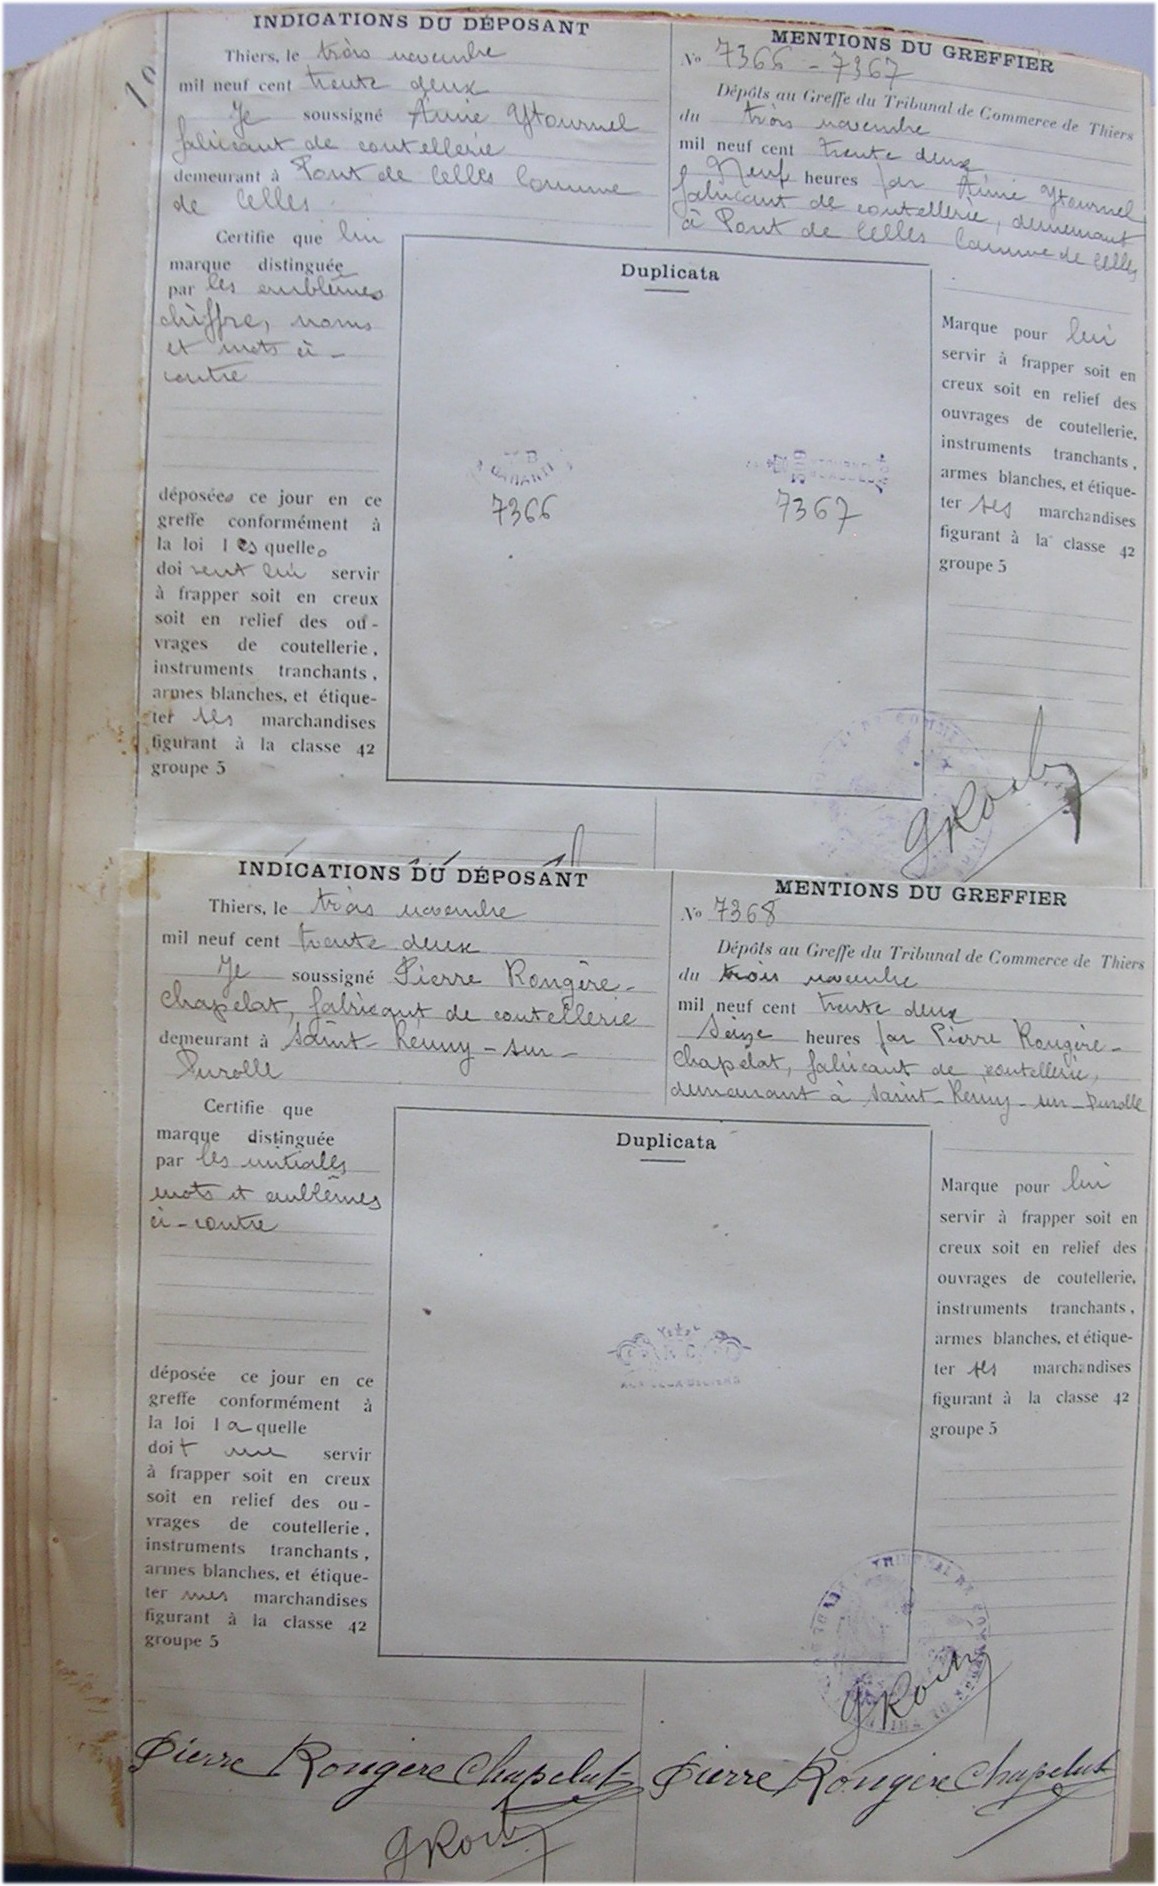 INDICATIONS DU DÉPOSANT
Thiers, le trois novembre
mil neuf cent trente deux
Je soussigné Aimé Ytournel
fabricant de coutellerie
demeurant à Pont de Celles Commune
de Celles.
Certifie que lui
marque distinguée
par les emblêmes
chiffre, noms
et mots ci-
contre
déposées ce jour en ce
greffe conformément à
la loi lesquelles
doivent lui servir
à frapper soit en creux
soit en relief des ou-
vrages de coutellerie,
instruments tranchants,
armes blanches, et étique-
ter ses marchandises
figurant à la classe 42
groupe 5
MENTIONS DU GREFFIER
No 7366 - 7367
Dépôts au Greffe du Tribunal de Commerce de Thiers
du trois novembre
mil neuf cent trente deux
Neuf heures par Aimé Ytournel
fabricant de coutellerie, demeurant
à Pont de Celles Commune de Celles
Duplicata
GARANTI
7366
7367
Marque pour lui
servir à frapper soit en
creux soit en relief des
ouvrages de coutellerie,
instruments tranchants,
armes blanches, et étique-
ter ses marchandises
figurant à la classe 42
groupe 5
GRoch
INDICATIONS DU DÉPOSANT
Thiers, le trois novembre
mil neuf cent trente deux
Je soussigné Pierre Rougère-
Chapelat, fabricant de coutellerie
demeurant à Saint-Remy-sur-
Durolle
Certifie que
marque distinguée
par les initialles
mots et emblêmes
ci-contre
déposée ce jour en ce
greffe conformément à
la loi laquelle
doit me servir
à frapper soit en creux
soit en relief des ou-
vrages de coutellerie,
instruments tranchants,
armes blanches, et étique-
ter mes marchandises
figurant à la classe 42
groupe 5
MENTIONS DU GREFFIER
No 7368
Dépôts au Greffe du Tribunal de Commerce de Thiers
du trois novembre
mil neuf cent trente deux
Seize heures par Pierre Rougère-
Chapelat, fabricant de coutellerie,
demeurant à Saint-Remy-sur-Durolle
Duplicata
R C
AUX DEUX BELIERS
Marque pour lui
servir à frapper soit en
creux soit en relief des
ouvrages de coutellerie,
instruments tranchants,
armes blanches, et étique-
ter ses marchandises
figurant à la classe 42
groupe 5
TRIBUNAL DE COMMERCE
GRoch
Pierre Rougère Chapelat
Pierre Rougère Chapelat
GRoch